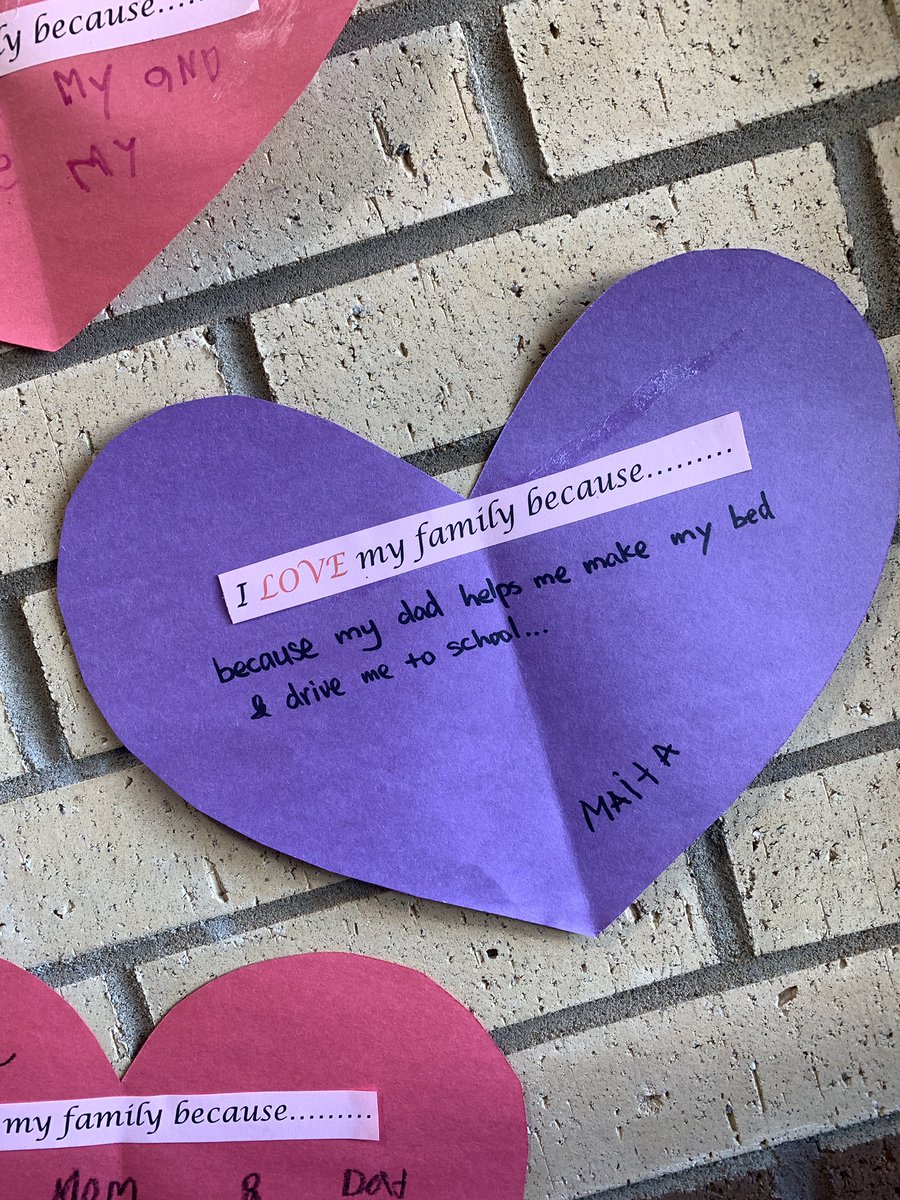 ly because.....
MY AND
MY
I LOVE my family because.........
because my dad helps me make my bed
& drive me to school...
MAitA
my family because.........
Mom & Dad